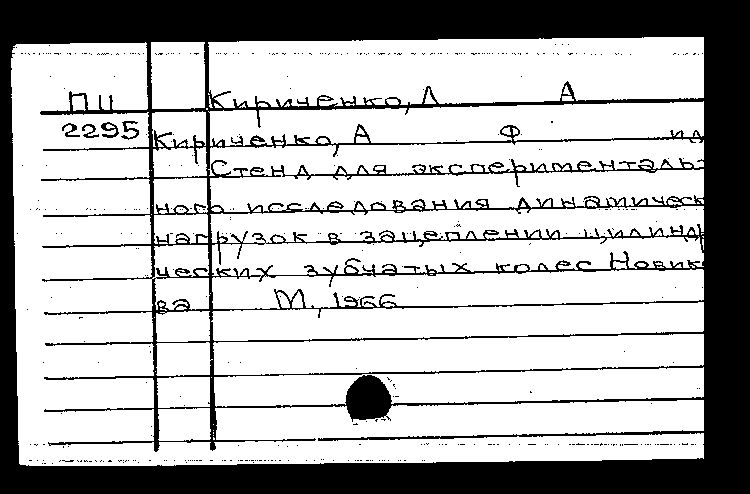 ПII Кириченко, Л А
2295 Кириченко, А Ф ид
Стенд для эксперименталь-
ного исследования динамическ
нагрузок в зацеплении цилиндр
ческих зубчатых колес Новико
ва М., 1966